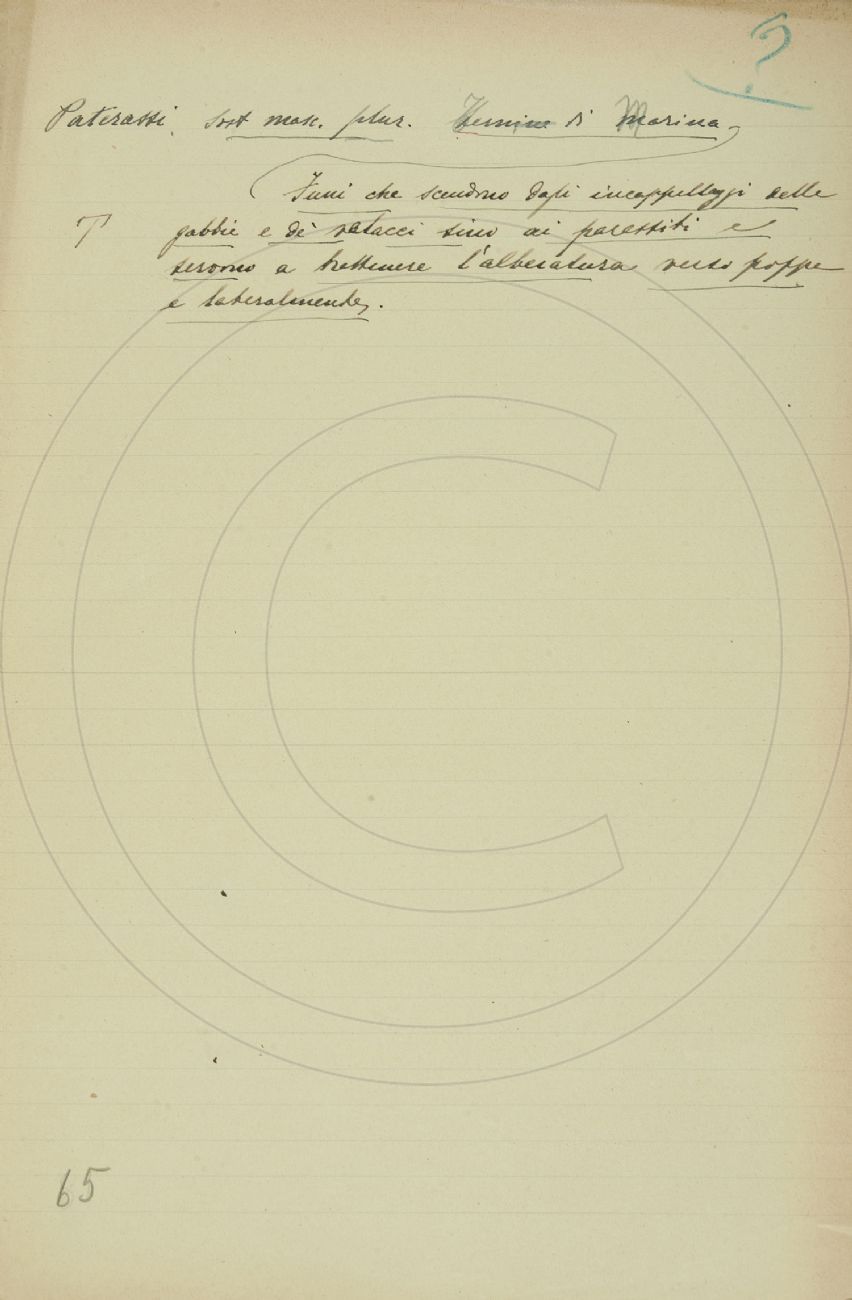 ?
Paterassi, sost. masc. plur. Termine di Marina,
Funi che scendono dagli incappellaggi delle
T gabbie e de' velacci sino ai parassiti e
servono a trattenere l'alberatura verso poppa
e lateralmente.
65